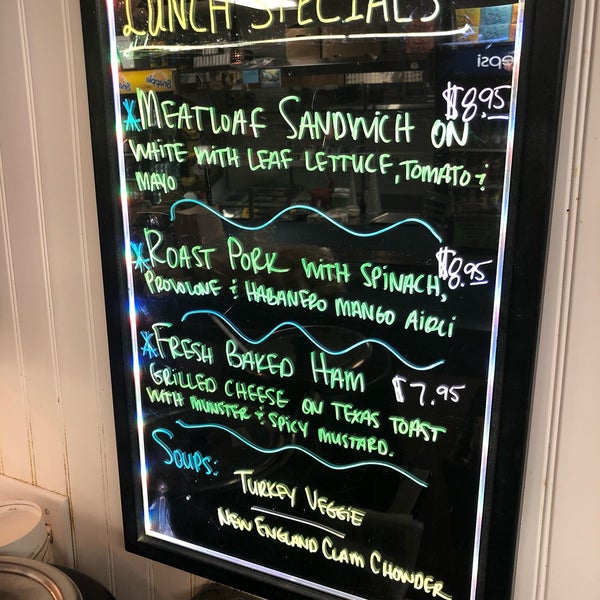 LUNCH SPECIALS
* MEATLOAF SANDWICH ON $8.95
WHITE WITH LEAF LETTUCE, TOMATO &
MAYO
* ROAST PORK WITH SPINACH, $8.95
PROVOLONE & HABANERO MANGO AIOLI
* FRESH BAKED HAM $7.95
GRILLED CHEESE ON TEXAS TOAST
WITH MUNSTER & SPICY MUSTARD.
SOUPS:
TURKEY VEGGIE
NEW ENGLAND CLAM CHOWDER
pepsi
Snapple